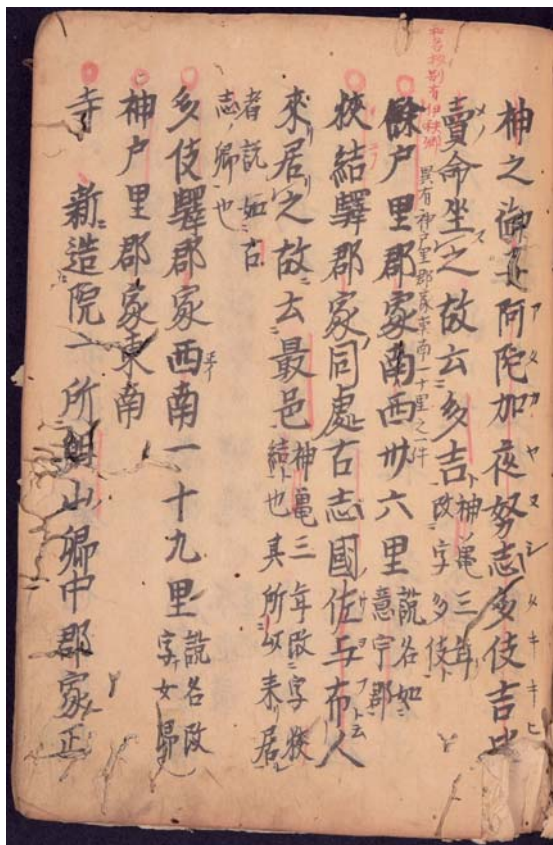 神之御子阿陀加夜努志多伎吉比
賣命坐之故云多吉神亀三年改字多伎
和名抄別有伊秩郷
異有神戸里郡家東南一十里之一件
餘戸里郡家南西卅六里說名如意宇郡
狹結驛郡家同處古志國佐与布云人
來居之故云最邑神亀三年改字狹結也其所以来居
者說如古志郷也
多伎驛郡家西南一十九里說名改字如郷
神戸里郡家東南
寺
新造院一所山郷中郡家正